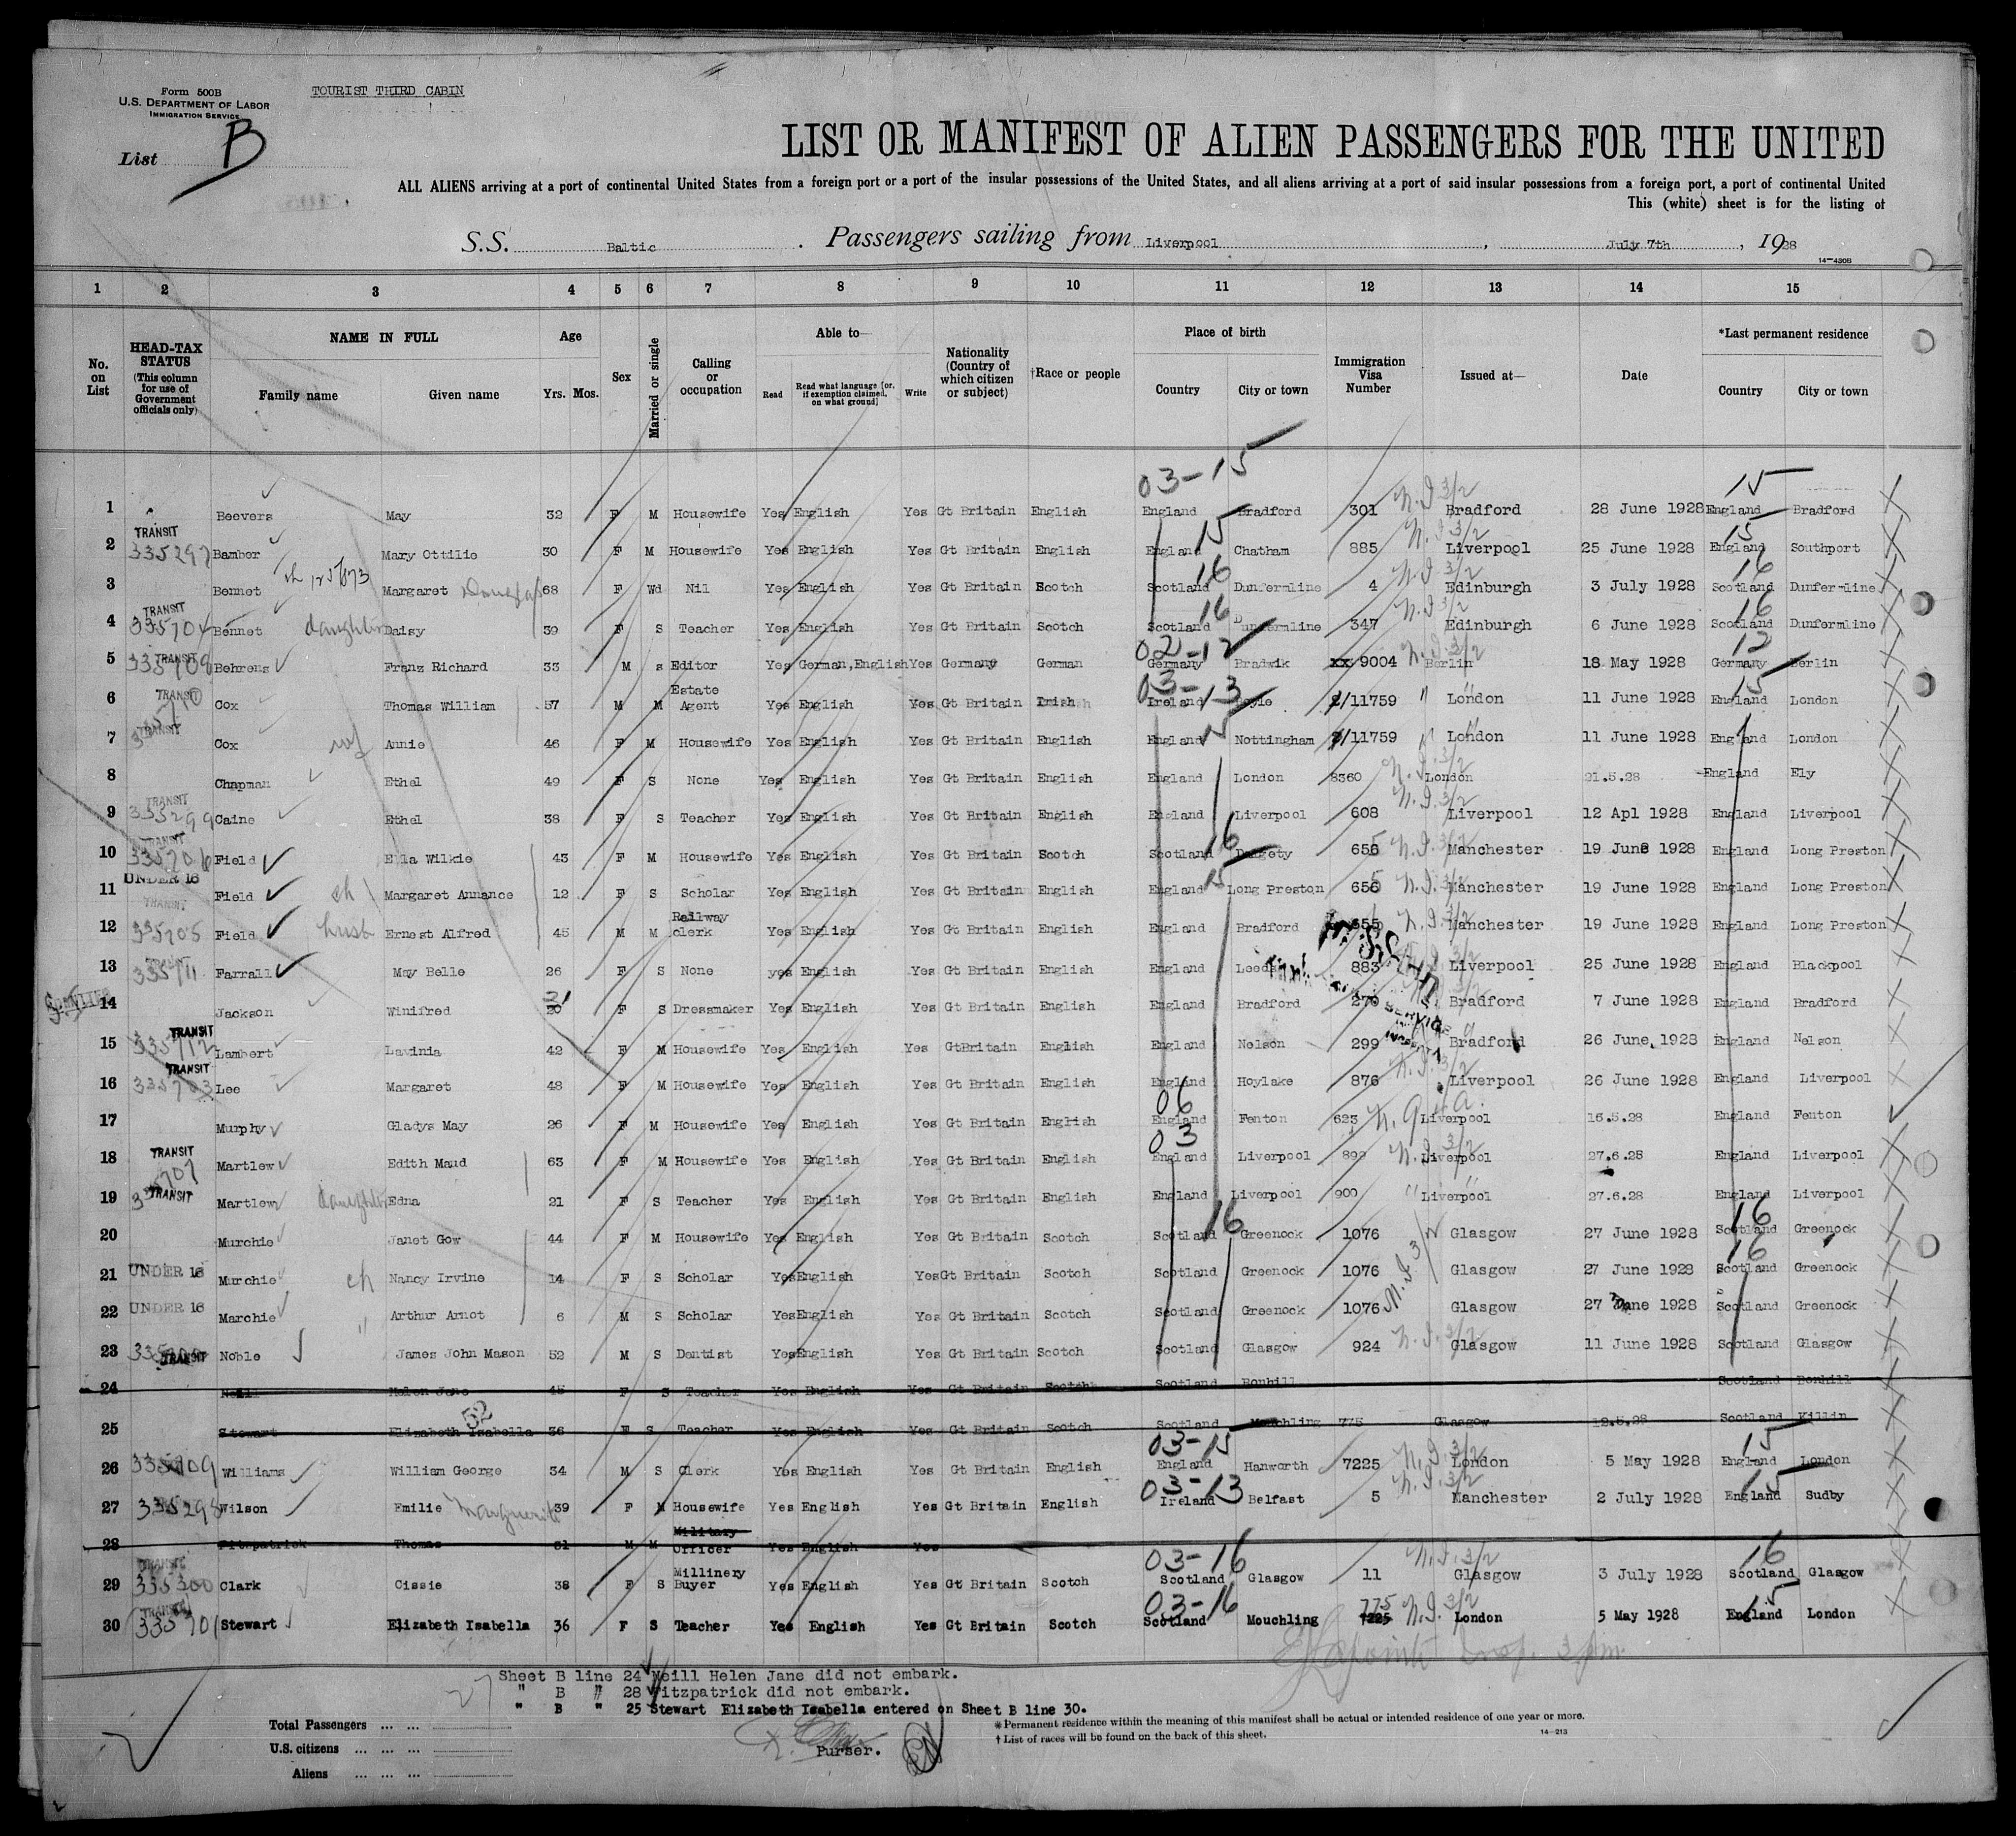 Form 500B
U.S. DEPARTMENT OF LABOR
IMMIGRATION SERVICE
TOURIST THIRD CABIN
List B
LIST OR MANIFEST OF ALIEN PASSENGERS FOR THE UNITED
ALL ALIENS arriving at a port of continental United States from a foreign port or a port of the insular possessions of the United States, and all aliens arriving at a port of said insular possessions from a foreign port, a port of continental United
This (white) sheet is for the listing of
S.S. Baltic. Passengers sailing from Liverpool, July 7th, 1928
14—430B
1 2 3 4 5 6 7 8 9 10 11 12 13 14 15
No. on List
HEAD-TAX STATUS (This column for use of Government officials only)
NAME IN FULL
Family name Given name
Age
Yrs. Mos.
Sex
Married or single
Calling or occupation
Able to—
Read Read what language [or, if exemption claimed, on what ground] Write
Nationality (Country of which citizen or subject)
†Race or people
Place of birth
Country City or town
Immigration Visa Number
Issued at—
Date
*Last permanent residence
Country City or town
03-15 15
1 Beevers May 32 F M Housewife Yes English Yes Gt Britain English England Bradford 301 N.I.3/2 Bradford 28 June 1928 England Bradford
2 TRANSIT 335297 Bamber Mary Ottilie 30 F M Housewife Yes English Yes Gt Britain English England 15 Chatham 885 N.I.3/2 Liverpool 25 June 1928 England 15 Southport
3 Bennet Margaret Douglas 68 F Wd Nil Yes English Yes Gt Britain Scotch Scotland 16 Dunfermline 4 N.I.3/2 Edinburgh 3 July 1928 Scotland 16 Dunfermline
4 TRANSIT 335704 Bennet daughter Daisy 39 F S Teacher Yes English Yes Gt Britain Scotch Scotland 16 Dunfermline 347 N.I.3/2 Edinburgh 6 June 1928 Scotland 16 Dunfermline
5 TRANSIT 335708 Behrens Franz Richard 33 M S Editor Yes German, English Yes Germany German 02-12 Germany Bradwik xx 9004 N.I.3/2 Berlin 18 May 1928 12 Germany Berlin
6 TRANSIT Cox Thomas William 57 M M Estate Agent Yes English Yes Gt Britain Irish 03-13 Ireland Boyle 2/11759 " London 11 June 1928 England 15 London
7 TRANSIT Cox wf Annie 46 F M Housewife Yes English Yes Gt Britain English England 15 Nottingham 2/11759 " London 11 June 1928 England London
8 Chapman Ethel 49 F S None Yes English Yes Gt Britain English England London 8360 N.I.3/2 London 21.5.28 England Ely
9 TRANSIT 335299 Caine Ethel 38 F S Teacher Yes English Yes Gt Britain English England Liverpool 608 N.I.3/2 Liverpool 12 Apl 1928 England Liverpool
10 TRANSIT 335706 Field Ella Wilkie 43 F M Housewife Yes English Yes Gt Britain Scotch Scotland 16 Dalgety 656 N.I.3/2 Manchester 19 June 1928 England Long Preston
11 UNDER 16 Field ch Margaret Annance 12 F S Scholar Yes English Yes Gt Britain English England 15 Long Preston 656 N.I.3/2 Manchester 19 June 1928 England Long Preston
12 TRANSIT 335705 Field husb Ernest Alfred 45 M M Railway clerk Yes English Yes Gt Britain English England Bradford 655 N.I.3/2 Manchester 19 June 1928 England Long Preston
13 335711 Farrall May Belle 26 F S None yes English Yes Gt Britain English England Leeds 883 N.I.3/2 Liverpool 25 June 1928 England Blackpool
14 Jackson Winifred 31 20 F S Dressmaker Yes English Yes Gt Britain English England Bradford 270 Bradford 7 June 1928 England Bradford
15 TRANSIT 335712 Lambert Lavinia 42 F M Housewife Yes English Yes GtBritain English England Nelson 299 Bradford 26 June 1928 England Nelson
16 TRANSIT 335703 Lee Margaret 48 F M Housewife Yes English Yes Gt Britain English England Hoylake 876 N.I.3/2 Liverpool 26 June 1928 England Liverpool
17 Murphy Gladys May 26 F M Housewife Yes English Yes Gt Britain English 06 England Fenton 623 Liverpool 16.5.28 England Fenton
18 TRANSIT Martlew Edith Maud 63 F M Housewife Yes English Yes Gt Britain English 03 England Liverpool 899 N.I.3/2 Liverpool 27.6.28 England Liverpool
19 TRANSIT Martlew daughter Edna 21 F S Teacher Yes English Yes Gt Britain English England Liverpool 900 " Liverpool 27.6.28 England Liverpool
20 Murchie Janet Gow 44 F M Housewife Yes English Yes Gt Britain Scotch Scotland 16 Greenock 1076 Glasgow 27 June 1928 Scotland 16 Greenock
21 UNDER 16 Murchie ch Nancy Irvine 14 F S Scholar Yes English Yes Gt Britain Scotch Scotland Greenock 1076 Glasgow 27 June 1928 Scotland 16 Greenock
22 UNDER 16 Marchie " Arthur Arnot 6 M S Scholar Yes English Yes Gt Britain Scotch Scotland Greenock 1076 Glasgow 27 June 1928 Scotland Greenock
23 TRANSIT Noble James John Mason 52 M S Dentist Yes English Yes Gt Britain Scotch Scotland Glasgow 924 N.I.3/2 Glasgow 11 June 1928 Scotland Glasgow
24 Neill Helen Jane 45 F S Teacher Yes English Yes Gt Britain Scotch Scotland Bonhill Scotland Bonhill
25 Stewart Elizabeth Isabella 52 36 F S Teacher Yes English Yes Gt Britain Scotch Scotland Mouchling 775 Glasgow 12.5.28 Scotland Killin
26 335709 Williams William George 34 M S Clerk Yes English Yes Gt Britain English 03-15 England Hanworth 7225 N.I.3/2 London 5 May 1928 15 England London
27 335298 Wilson Emilie Marguerite 39 F M Housewife Yes English Yes Gt Britain English 03-13 Ireland Belfast 5 N.I.3/2 Manchester 2 July 1928 England 15 Sudby
28 Fitzpatrick Thomas 31 M M Military Officer Yes English Yes
29 TRANSIT 335300 Clark Cissie 38 F S Millinery Buyer Yes English Yes Gt Britain Scotch 03-16 Scotland Glasgow 11 N.I.3/2 Glasgow 3 July 1928 16 Scotland Glasgow
30 TRANSIT 335701 Stewart Elizabeth Isabella 36 F S Teacher Yes English Yes Gt Britain Scotch 03-16 Scotland Mouchling 775 7225 N.I.3/2 London 5 May 1928 England 15 London
Sheet B line 24 Neill Helen Jane did not embark.
" B " 28 Fitzpatrick did not embark.
" B " 25 Stewart Elizabeth Isabella entered on Sheet B line 30.
27
Purser.
Total Passengers ... ...
U.S. citizens ... ... ...
Aliens ... ... ...
* Permanent residence within the meaning of this manifest shall be actual or intended residence of one year or more.
† List of races will be found on the back of this sheet.
14—213